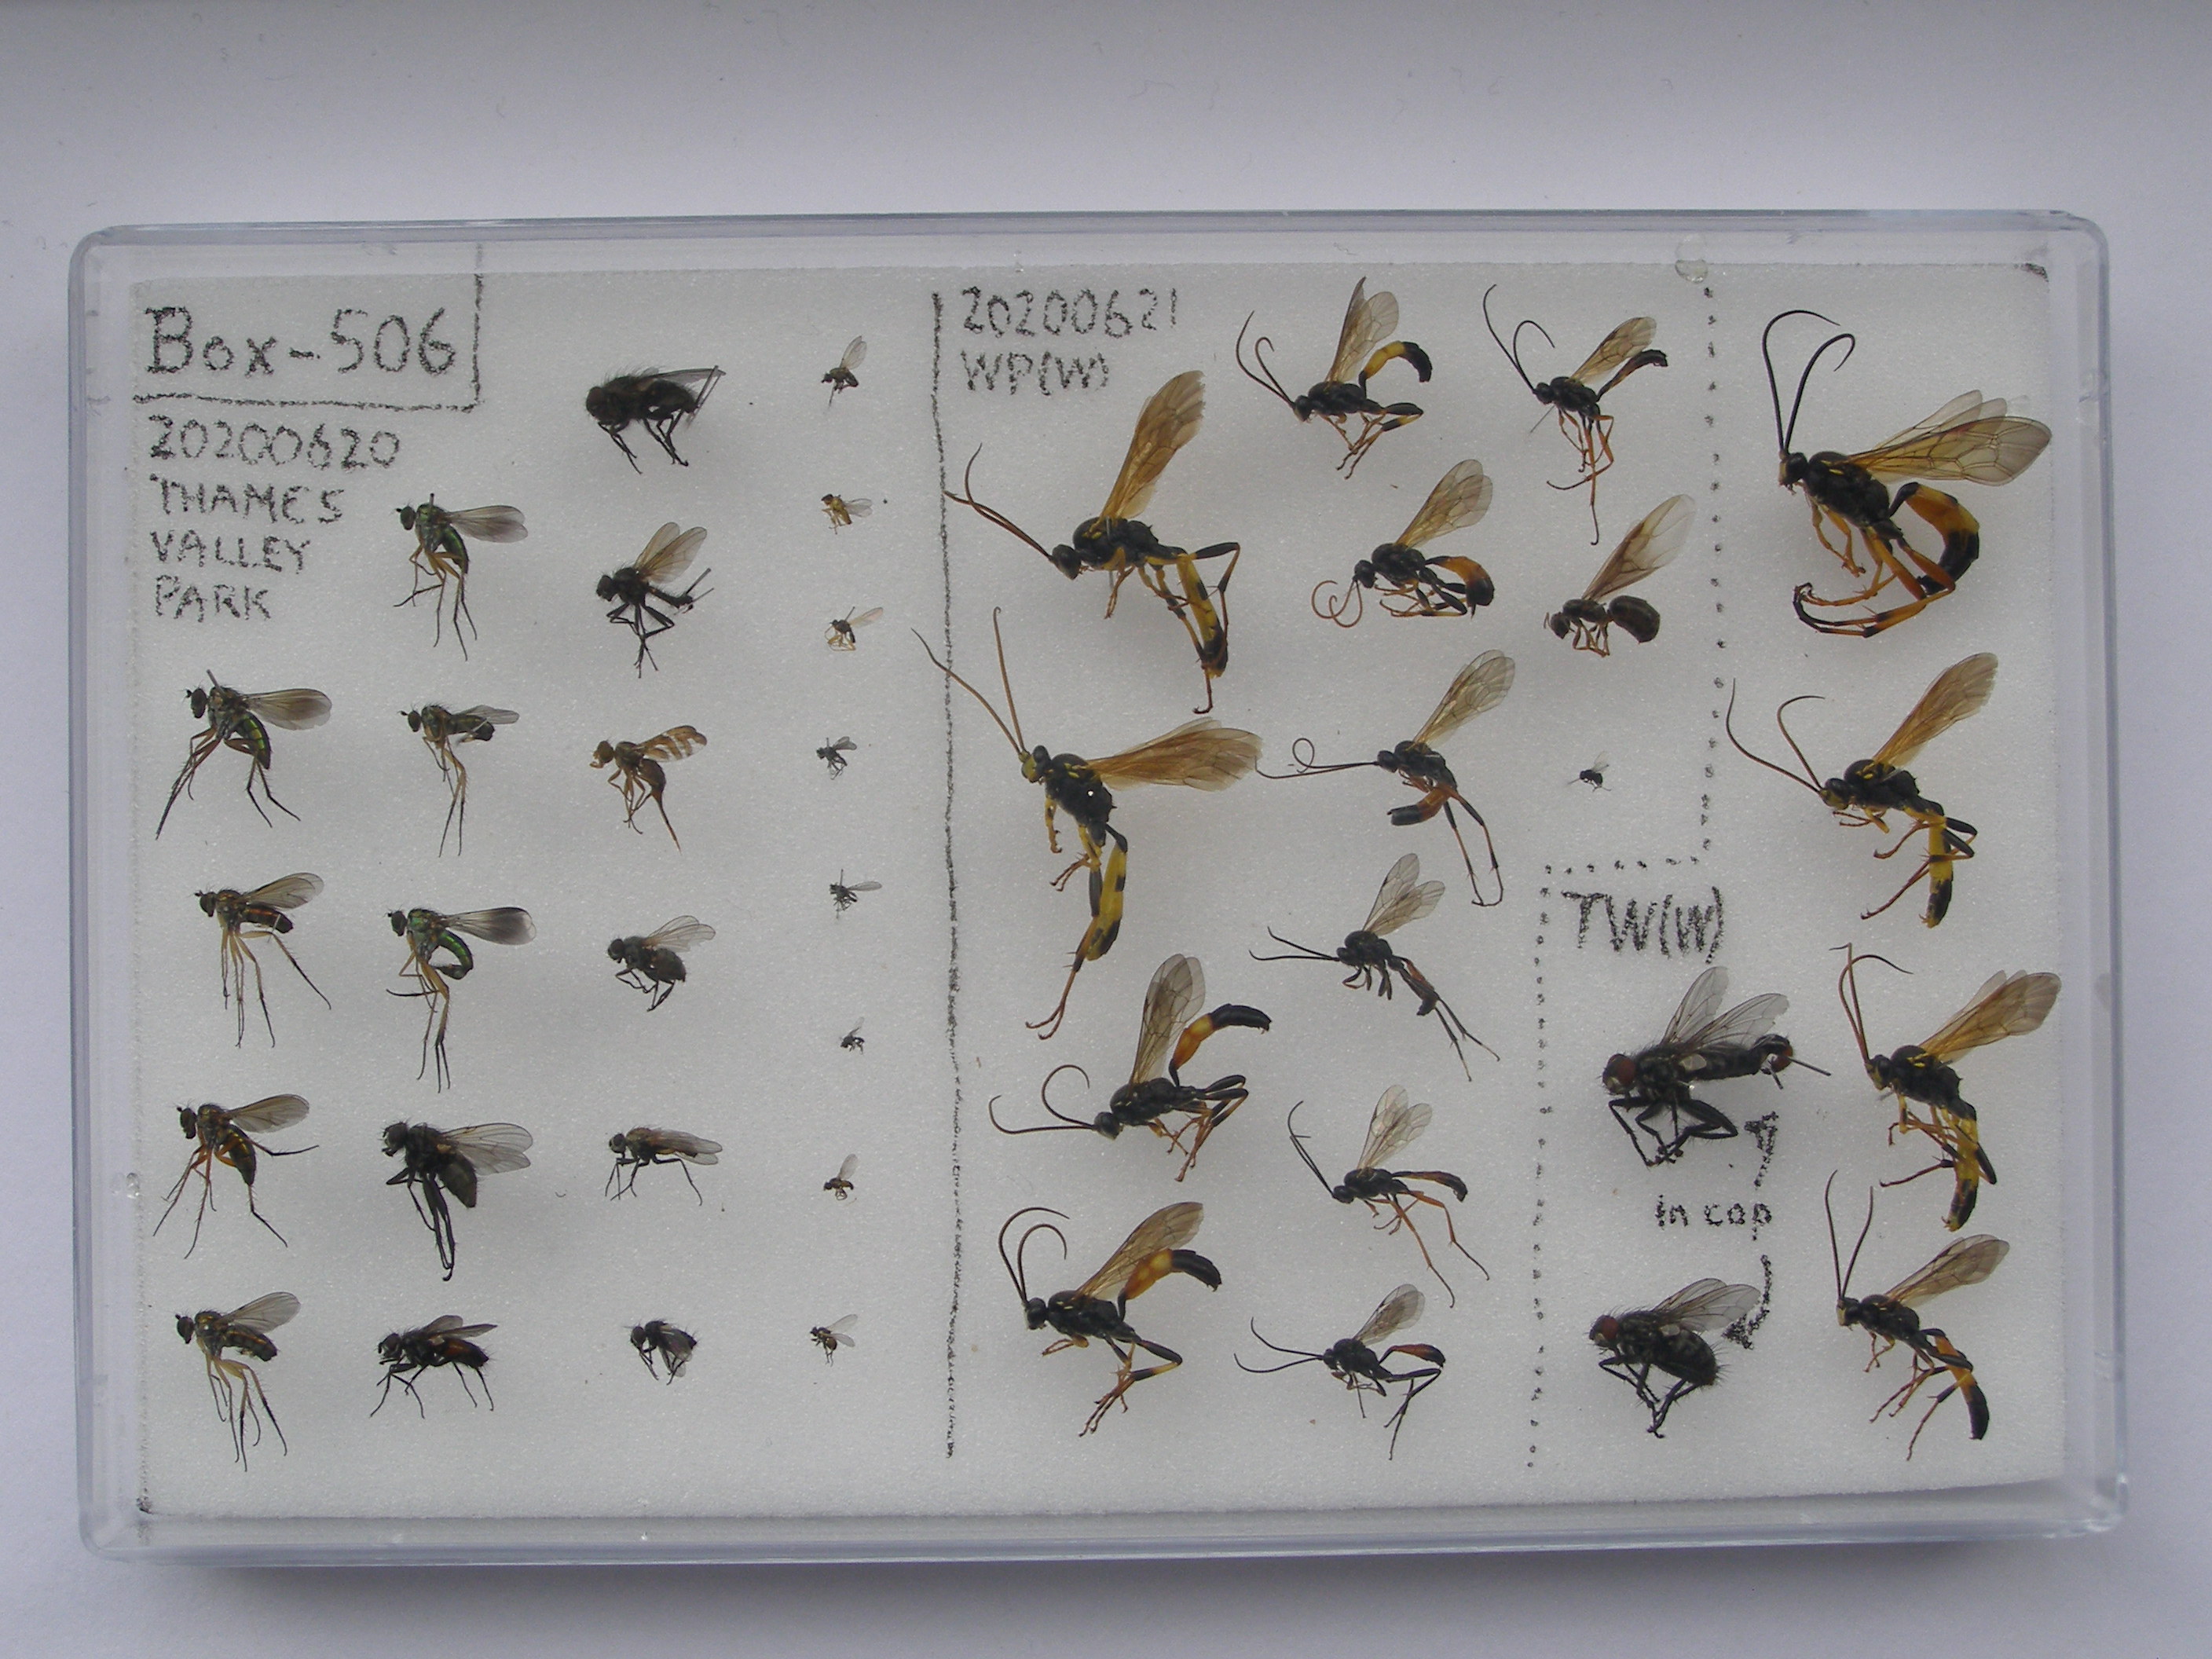 Box-506
20200620
THAMES
VALLEY
PARK
20200621
WP(W)
TW(W)
in cop